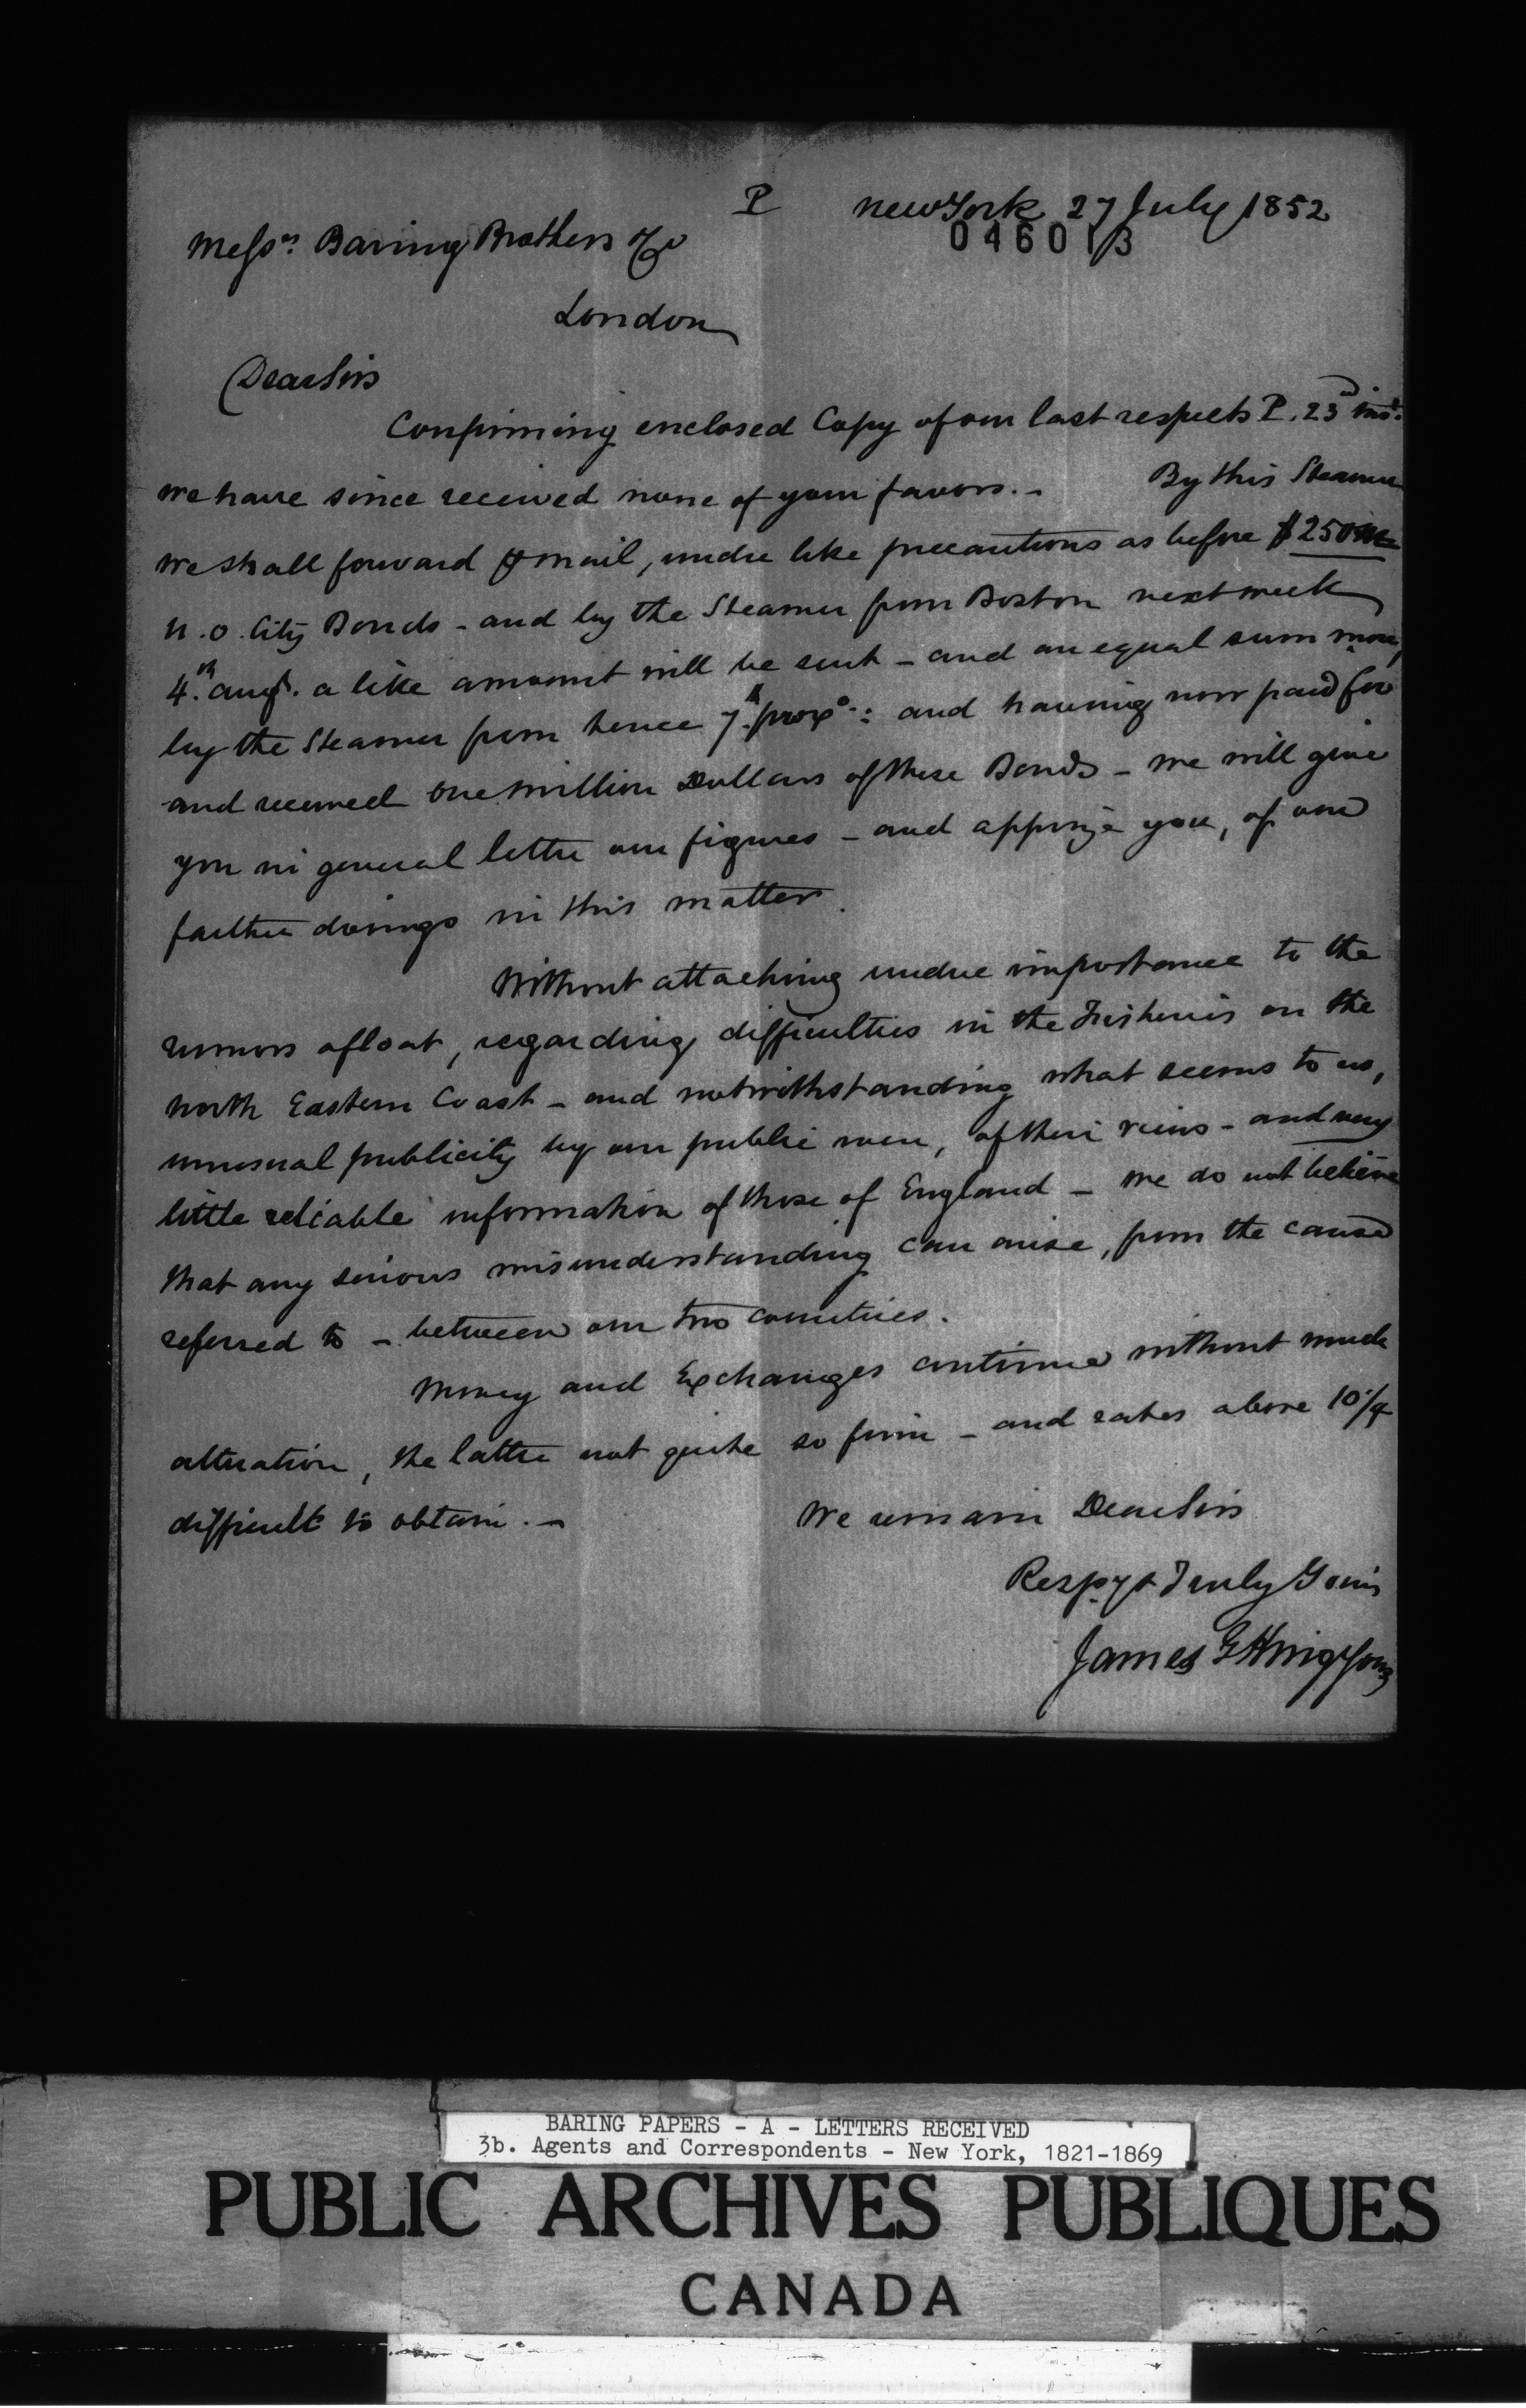 P
New York 27 July 1852
046013
Messrs. Baring Brothers & Co
London
Dear Sirs
Confirming enclosed Copy of our last respects P. 23d inst.
we have since received none of your favors. - By this Steamer
we shall forward P mail, under like precautions as before $250m
N.O. City Bonds - and by the Steamer from Boston next week
4.th augt. a like amount will be sent - and an equal sum more,
by the Steamer from hence 7.th proxo.: and having now paid for
and received one million Dollars of these Bonds - we will give
you in general letter our figures - and apprize you, of our
farther doings in this matter.
Without attaching undue importance to the
rumors afloat, regarding difficulties in the Fisheries on the
North Eastern Coast - and notwithstanding what seems to us,
unusual publicity by our public men, of their views - and very
little reliable information of those of England - we do not believe
that any serious misunderstanding can arise, from the cause
referred to - between our two countries.
Money and Exchanges continue without much
alteration, the latter not quite so firm - and rates above 10 1/4
difficult to obtain. -
We remain Dear Sirs
Respy & Truly Yours
James G King & Sons
BARING PAPERS - A - LETTERS RECEIVED
3b. Agents and Correspondents - New York, 1821-1869
PUBLIC ARCHIVES PUBLIQUES
CANADA